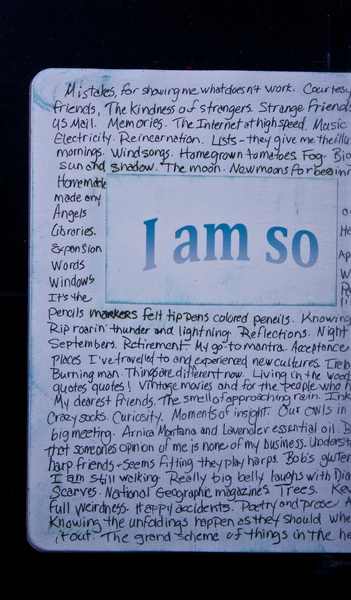 Mistakes, for showing me what doesn't work. Courtesy
friends, The Kindness of strangers. Strange Friend
US Mail. Memories. The Internet at high speed. Music
Electricity. Reincarnation. Lists - they give me the illu
mornings. Windsongs. Homegrown tomatoes Fog. Bio
sun and shadow. The moon. New moons for beginn
Homemade
made any
Angels
Libraries.
Expansion
Words
Windows
It's the
I am so
pencils markers felt tip pens colored pencils. Knowing
Rip roarin' thunder and lightning. Reflections. Night
Septembers. Retirement. My go-to mantra. Acceptance
places I've travelled to and experienced new cultures.
Burning man. Things are different now. Living in the wood
quotes quotes! Vintage movies and for the people who h
My dearest friends. The smell of approaching rain. Ink
Crazy socks. Curiosity. Moments of insight. Our owls in
big meeting. Arnica Montana and Lavender essential oil. B
that someone's opinion of me is none of my business. Underst
harp friends - Seems fitting they play harps. Bob's gluten
I am still walking. Really big belly laughs with Dia
Scarves. National Geographic magazines. Trees. Kev
Full weirdness. Happy accidents. Poetry and prose A
Knowing the unfoldings happen as they should whe
it out. The grand scheme of things in the he